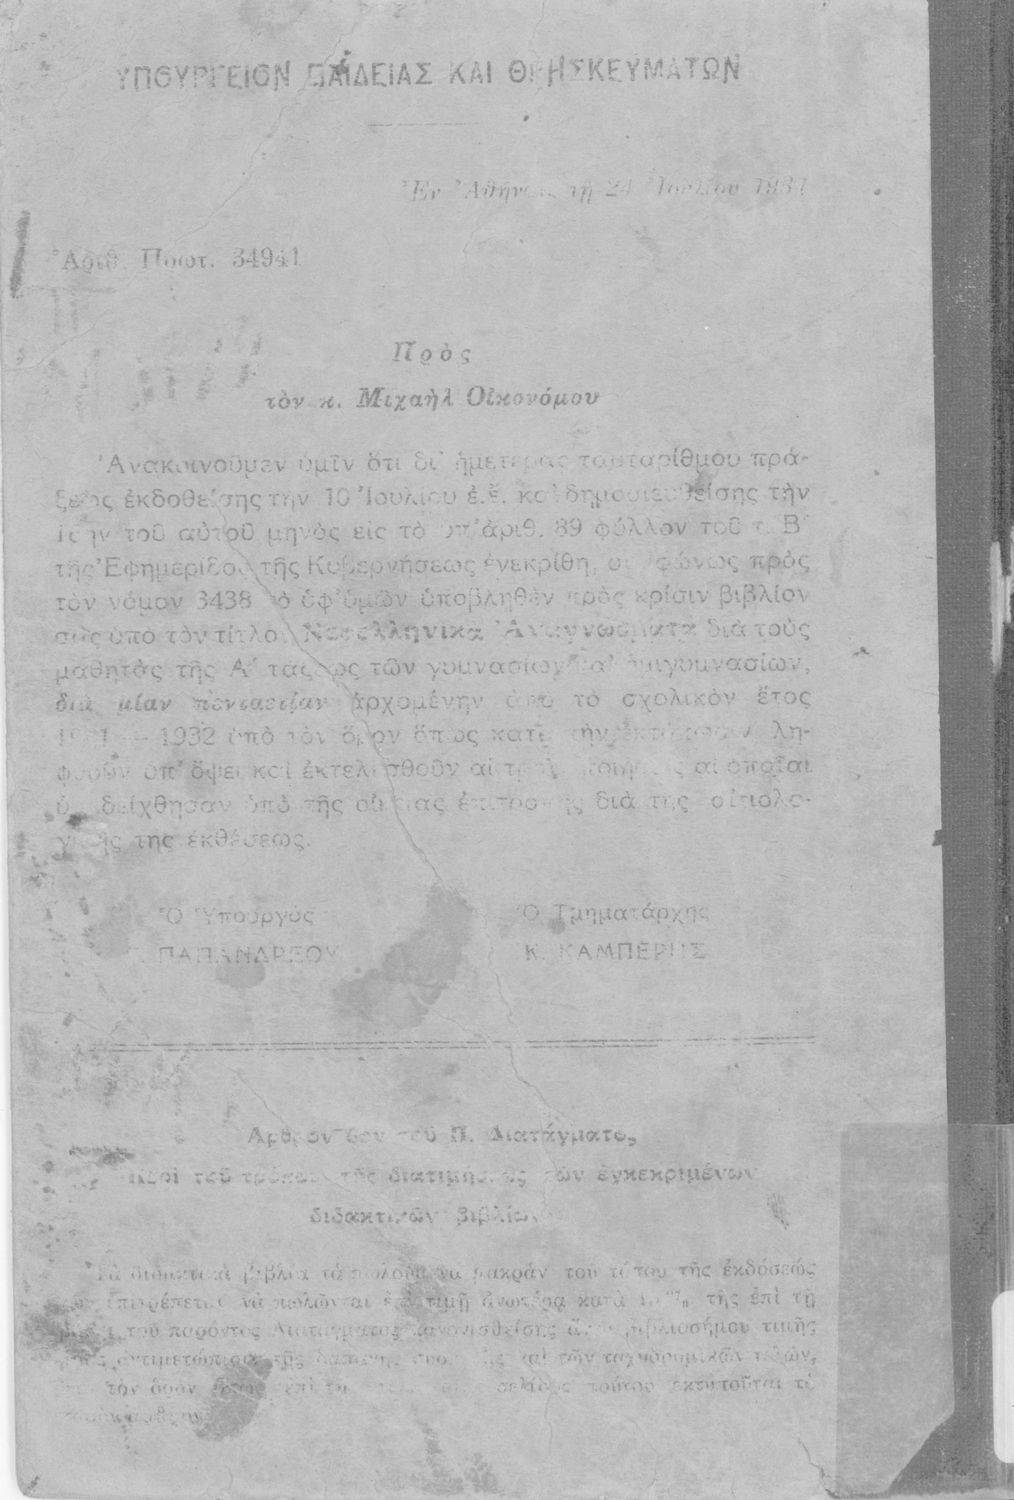 ΥΠΟΥΡΓΕΙΟΝ ΠΑΙΔΕΙΑΣ ΚΑΙ ΘΡΗΣΚΕΥΜΑΤΩΝ
Ἐν Ἀθήναις τῇ 24 Ἰουλίου
Ἀριθ. Πρωτ. 34941
Πρὸς
τὸν κ. Μιχαὴλ Οἰκονόμου
Ἀνακοινοῦμεν ὑμῖν ὅτι δι' ἡμετέρας ταυταρίθμου πρά-
ξεως ἐκδοθείσης τὴν 10 Ἰουλίου ἐ.ἔ. καὶ δημοσιευθείσης τὴν
τοῦ αὐτοῦ μηνὸς εἰς τὸ ὑπ' ἀριθ. 89 φύλλον τοῦ τ. Β'
τῆς Ἐφημερίδος τῆς Κυβερνήσεως ἐνεκρίθη, συμφώνως πρὸς
τὸν νόμον 3438 τὸ ὑφ' ὑμῶν ὑποβληθὲν πρὸς κρίσιν βιβλίον
σας ὑπὸ τὸν τίτλον Νεοελληνικὰ Ἀναγνώσματα διὰ τοὺς
μαθητὰς τῆς Α' τάξεως τῶν γυμνασίων καὶ ἡμιγυμνασίων,
διὰ μίαν πενταετίαν ἀρχομένην ἀπὸ τὸ σχολικὸν ἔτος
— 1932 ὑπὸ τὸν ὅρον ὅπως κατὰ τὴν ἐκτύπωσιν λη-
φθοῦν ὑπ' ὄψει καὶ ἐκτελεσθοῦν αἱ τροποποιήσεις αἱ ὁποῖαι
ὑπεδείχθησαν ὑπὸ τῆς οἰκείας ἐπιτροπῆς διὰ τῆς αἰτιολο-
γικῆς της ἐκθέσεως.
Ὁ Ὑπουργὸς
Ὁ Τμηματάρχης
ΠΑΠΑΝΔΡΕΟΥ
Κ. ΚΑΜΠΕΡΗΣ
Ἄρθρον 6ον τοῦ Π. Διατάγματος
Περὶ τοῦ τρόπου τῆς διατιμήσεως τῶν ἐγκεκριμένων
διδακτικῶν βιβλίων
Τὰ διδακτικὰ βιβλία τὰ πωλούμενα μακρὰν τοῦ τόπου τῆς ἐκδόσεώς
ἐπιτρέπεται νὰ πωλῶνται ἐπὶ τιμῇ ἀνωτέρᾳ κατὰ τῆς ἐπὶ τῇ
τοῦ παρόντος Διατάγματος κανονισθείσης ἄνευ βιβλιοσήμου τιμῆς
ἀντιμετώπισιν τῆς δαπάνης καὶ τῶν ταχυδρομικῶν τελῶν,
τὸν ὅρον ὅπως ἐπὶ σελίδος τούτου ἐκτυποῦται τὸ